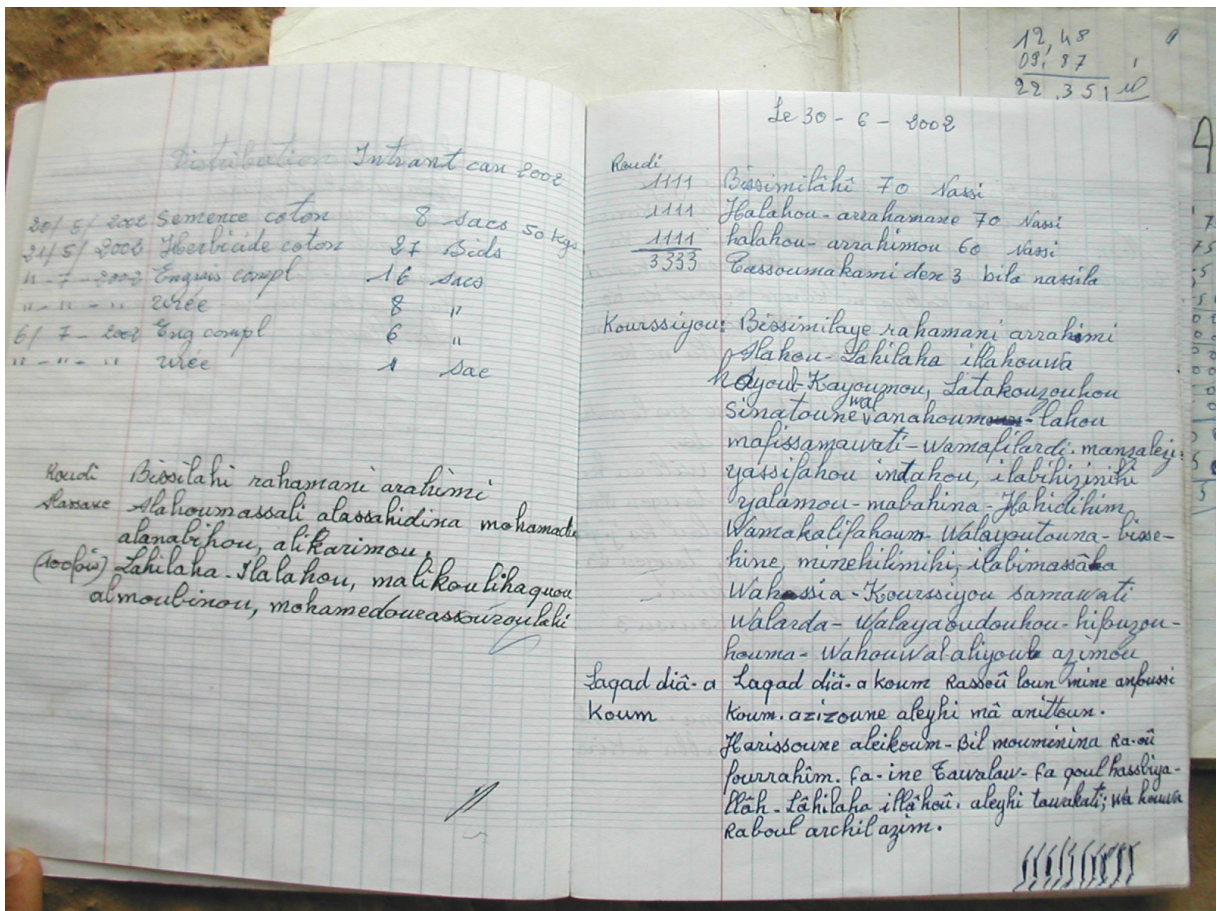 12,48
09,87
22,351
Distribution Intrant can 2002
20/5/2002 Semence coton 8 sacs 50 kgs
21/5/2002 Herbicide coton 27 Bids
"-7-2002 Engrais compl 16 sacs
"-"-" urée 8 "
6/7-2002 Eng compl 6 "
"-"-" urée 1 sac
Koudi Bissilahi rahamani arahimi
Alahoumassali alassahidina mohamadu
alanabihou, alikarimou,
(100fois) Lahilaha-Ilalahou, malikoulihaquou
almoubinou, mohamedoueassouroulahi
Le 30-6-2002
Roudi
1111 Bissimilâhi 70 Nassi
1111 Halahou-arrahamane 70 Nassi
1111 halahou-arrahimou 60 Nassi
3333 Tassoumakami den 3 bila nassila
Kourssiyou: Bissimilaye rahamani arrahimi
Alahou-Lahilaha illahouwa
hayoul-Kayoumou, Latakouzouhou
Sinatoune wal vanahoum-lahou
mafissamawati-wamafilardi. manzaleji
yassifahou indahou, ilabihizinihi
yalamou-mabahina-Hahidihim
Wamakalifahoum-Walayoutouna-bisse-
hine, minehilimihi, ilabimassâha
Wahassia-Kourssiyou samawati
Walarda-Walayaoudouhou-hifouzou-
houma-Wahouwalaliyoul azimou
Laqad diâ-a Laqad diâ-a koum Rassoû loun mine anfoussi
Koum Koum. azizoune aleyhi mâ anittoun.
Harissoune aleikoum-Bil mouminina Ra-oû
fourrahîm. Fa-ine Tawalaw-Fa qoul hassbiya-
llâh-Lâhilaha illâhoû. aleyhi tawakati; wa houwa
Raboul archil azim.